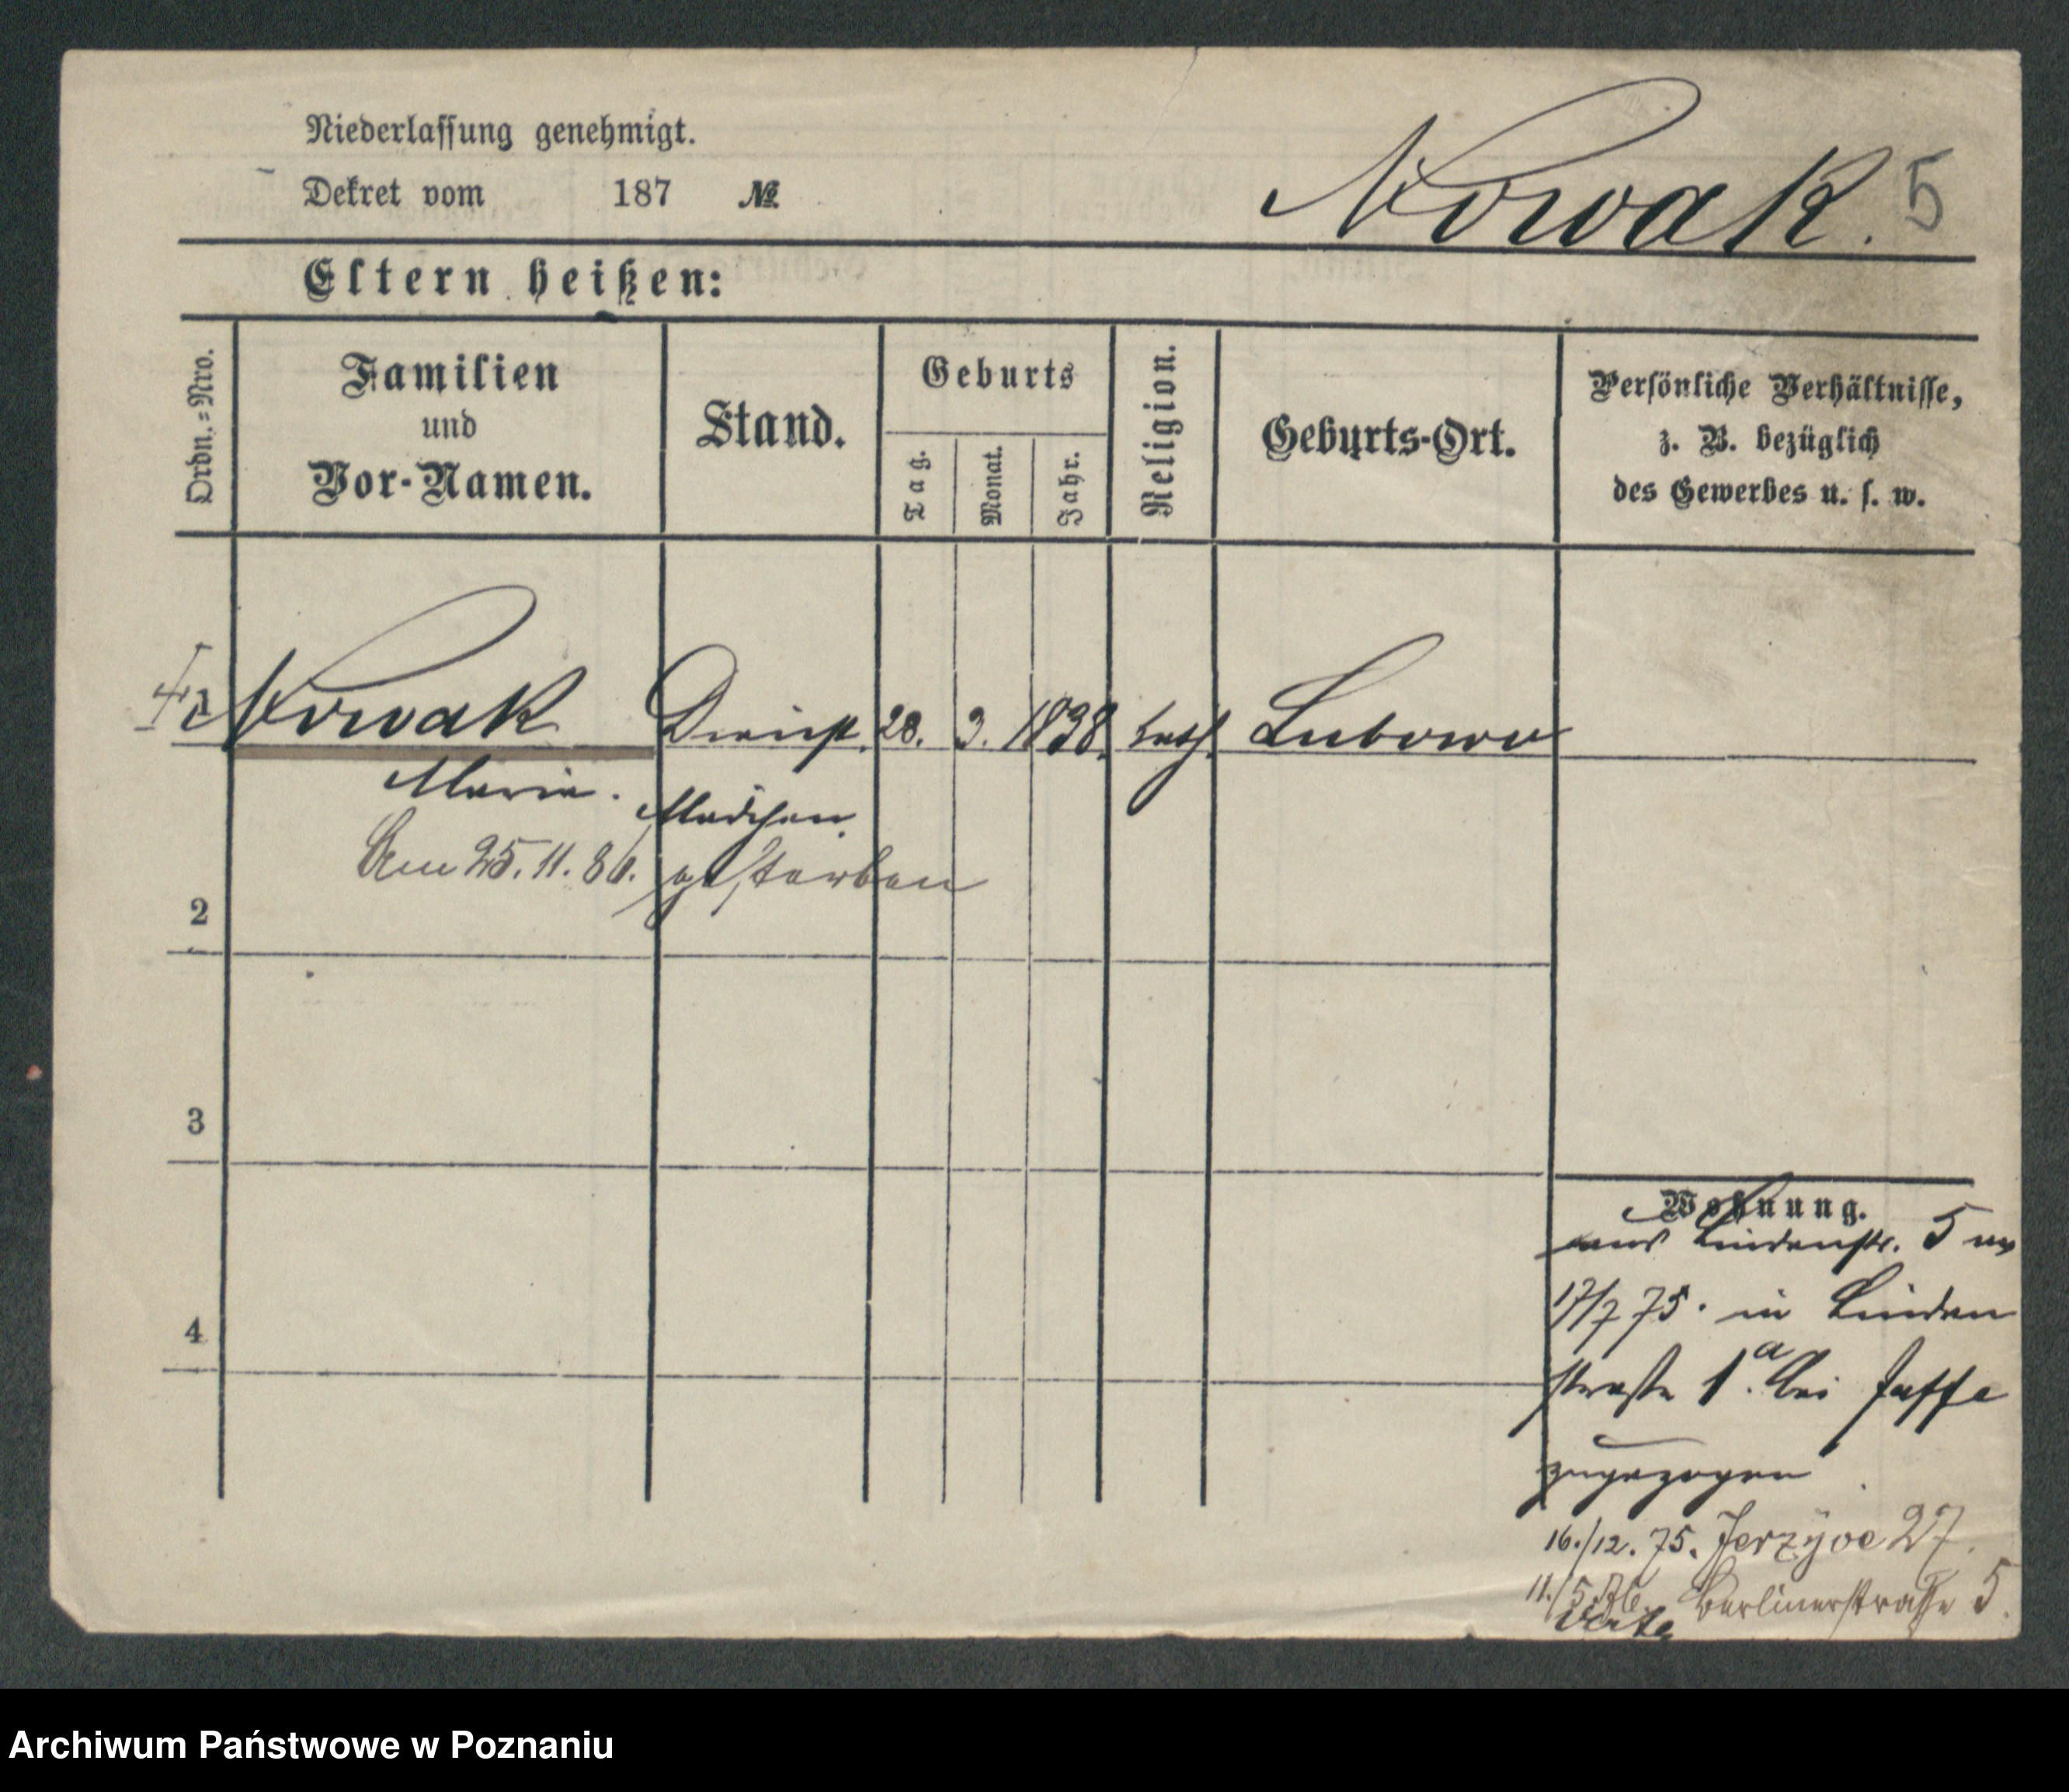 Niederlassung genehmigt.
Dekret vom 187 №
Nowak. 5
Eltern heißen:
Ordn.=Nro.
Familien
und
Vor-Namen.
Stand.
Geburts
Tag.
Monat.
Jahr.
Religion.
Geburts-Ort.
Persönliche Verhältnisse,
z. B. bezüglich
des Gewerbes u. s. w.
1 Nowak Dienst. 28. 3. 1838. kath. Lubowo
Marie. Mädchen.
Am 25.11.80. gestorben
2
3
4
Wohnung.
aus Lindenstr. 5
17/7 75. in Linden
straße 1.a bei Jaffe
zugezogen
16./12. 75. Jerzyce 27.
11./5. 76. Berlinerstraße 5.
Verte